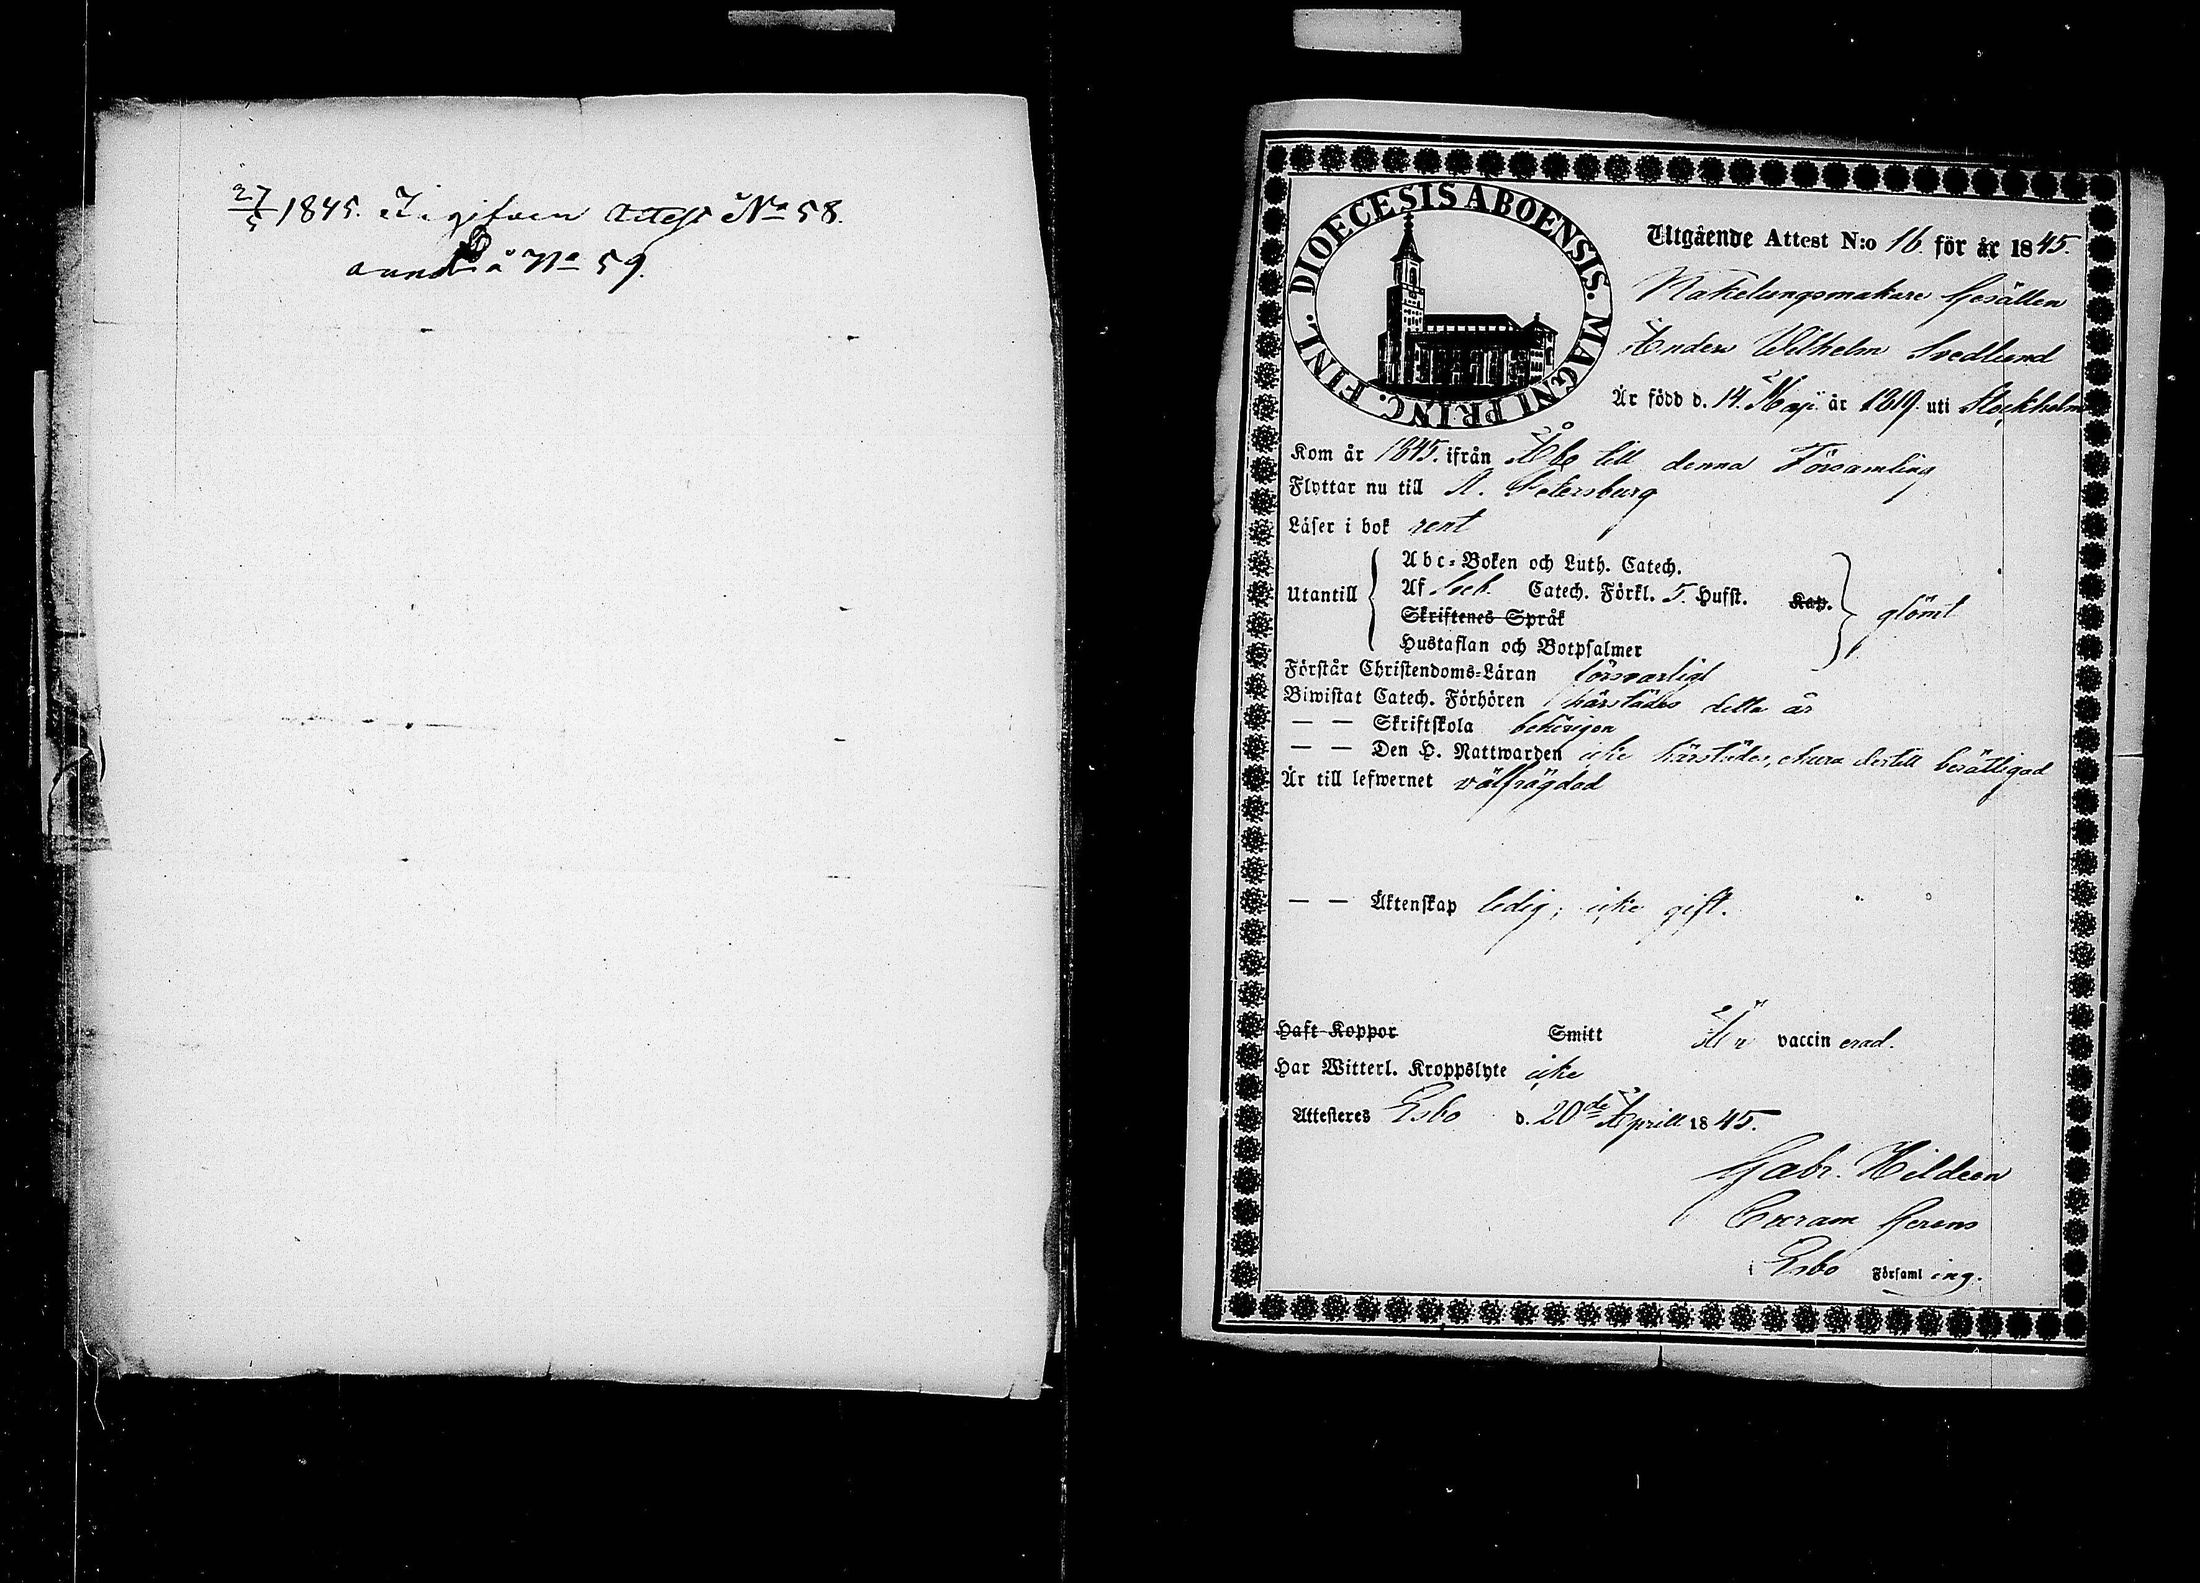 27/5 1845. Utgifven Attest No 58.
å No 59.
DIOECESIS ABOENSIS. MAGNI PRINC. FINL.
Utgående Attest N:o 16. för år 1845.
Kakelungsmakare Gesällen
Anders Wilhelm Svedlund
Är född d. 14. Maji år 1819. uti Stockholm
Kom år 1845. ifrån Åbo till denna Församling
Flyttar nu till St. Petersburg
Läser i bok rent
Utantill
Abc-Boken och Luth. Catech.
Af Sveb. Catech. Förkl. 5. Hufst. Kap.
Skriftenes Språk
Hustaflan och Botpsalmer
glömt
Förstår Christendoms-Läran försvarligt
Biwistat Catech. Förhören härstädes detta år
— — Skriftskola behörigen
— — Den H. Nattwarden icke härstädes, ehuru dertill berättigad
Är till lefwernet välfrägdad
— — Äktenskap ledig; icke gift.
Haft Koppor Smitt Är vaccinerad.
Har Witterl. Kroppslyte icke
Attesteres Esbo d. 20de Aprill 1845.
Gabr. Hildeen
Curam Gerens
Esbo Församling.